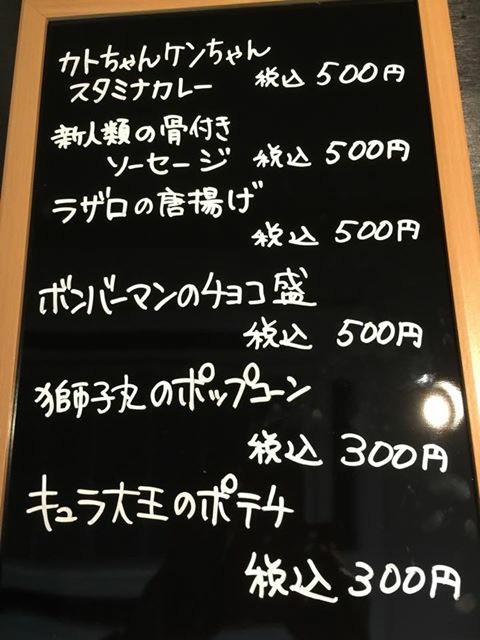 カトちゃんケンちゃん
スタミナカレー 税込 500円
新人類の骨付き
ソーセージ 税込 500円
ラザロの唐揚げ
税込 500円
ボンバーマンのチョコ盛
税込 500円
獅子丸のポップコーン
税込 300円
キュラ大王のポテチ
税込 300円